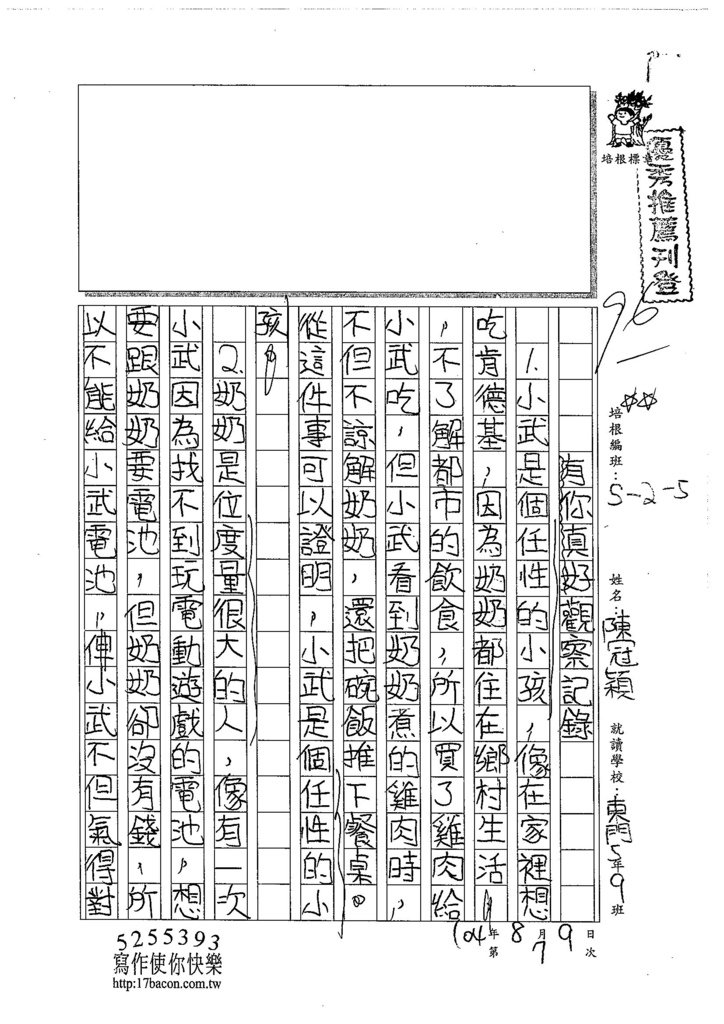 培根標章
優秀推薦刊登
96
培根編班：5-2-5
姓名：陳冠穎
就讀學校：東門5年9班
104年8月9日
第7次
有你真好觀察記錄
1.小武是個任性的小孩，像在家裡想
吃肯德基，因為奶奶都住在鄉村生活
，不了解都市的飲食，所以買了雞肉給
小武吃，但小武看到奶奶煮的雞肉時，
不但不諒解奶奶，還把碗飯推下餐桌。
從這件事可以證明，小武是個任性的小
孩。
2.奶奶是位度量很大的人，像有一次
小武因為找不到玩電動遊戲的電池，想
要跟奶奶要電池，但奶奶卻沒有錢，所
以不能給小武電池，但小武不但氣得對
5255393
寫作使你快樂
http:17bacon.com.tw